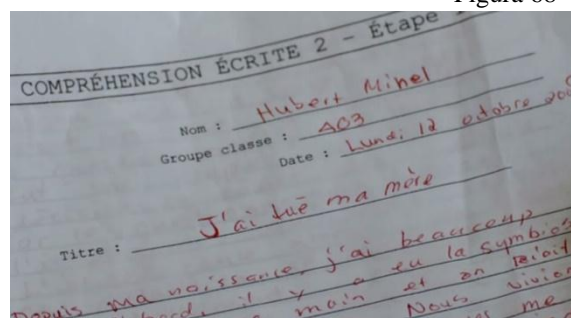 Figura 68
COMPRÉHENSION ÉCRITE 2 – Étape
Nom : Hubert Minel
Groupe classe : A03
Date : Lundi 12 octobre
Titre : J'ai tué ma mère
Depuis ma naissance, j'ai beaucoup
il y a eu la symbios
main et on
Nous vivion
me